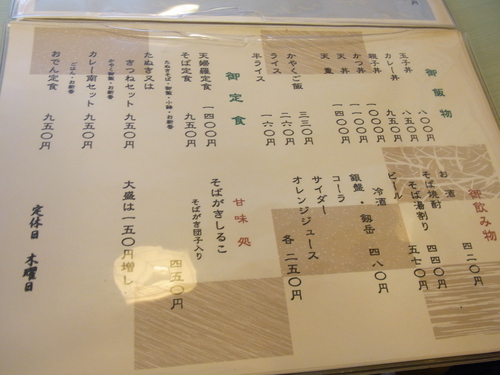 御飯物
玉子丼 八〇〇円
カレー丼 八五〇円
親子丼 九五〇円
かつ丼 一〇〇〇円
天丼 一一〇〇円
天重 一四〇〇円
かやくご飯 三三〇円
ライス 二六〇円
半ライス 一六〇円
御定食
天婦羅定食 一四〇〇円
そば定食 九五〇円
たぬきそば・御飯・小鉢・お新香
たぬき又は
きつねセット 九五〇円
かやく御飯・お新香
カレー南セット 九五〇円
ごはん・お新香
おでん定食 九五〇円
御飲み物
お酒 四二〇円
そば焼酎 四四〇円
そば湯割り
ビール 五七〇円
冷酒 四八〇円
銀盤・剱岳
コーラ
サイダー
オレンジジュース 各 二五〇円
甘味処
そばがきしるこ 四五〇円
そばがき団子入り
大盛は一五〇円増し
定休日 木曜日